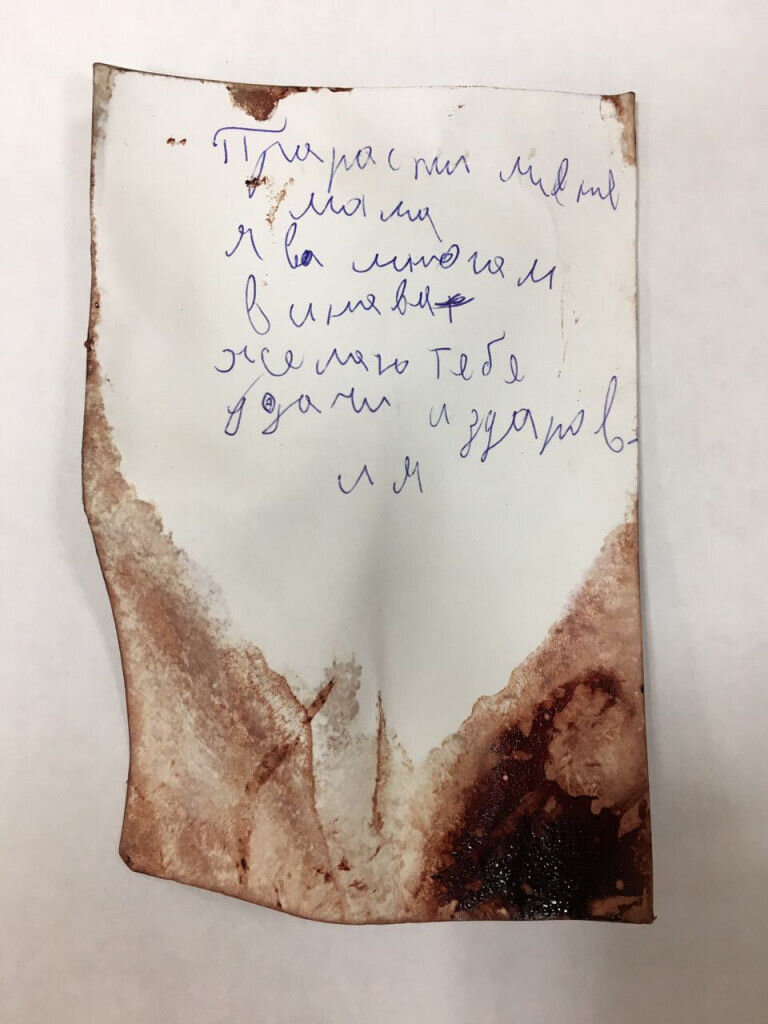 Прарасти миня
мама
я ва многам
винават
желаю тебе
удачи и здаров-
ия